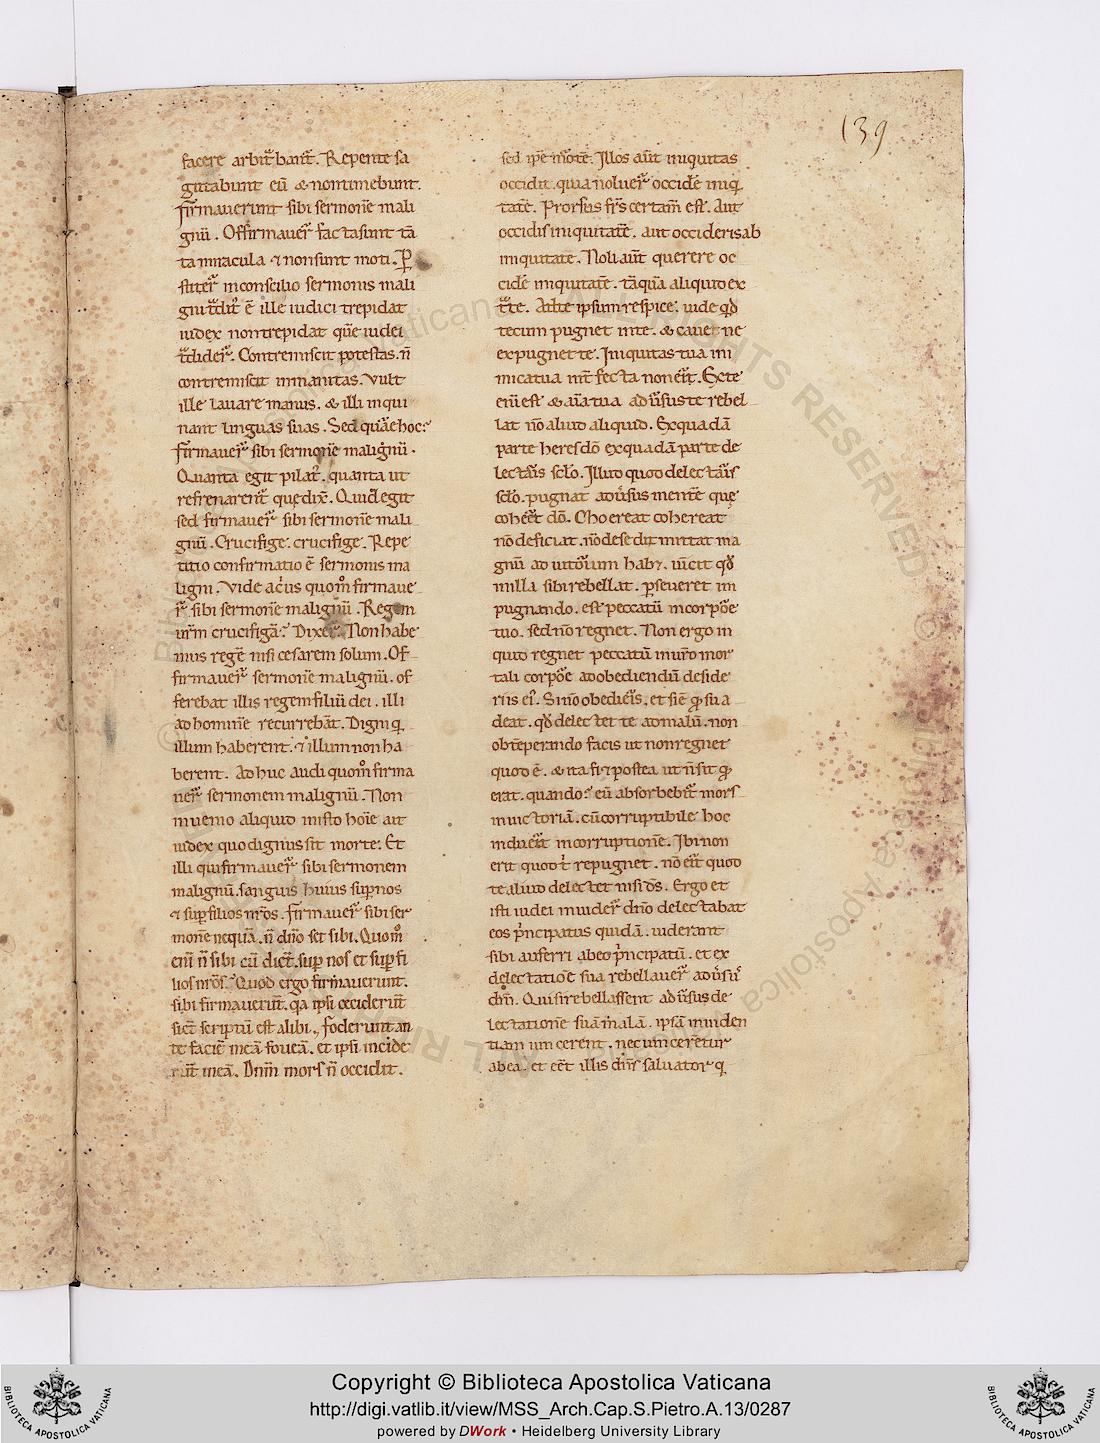 139
facere arbit̃bant̃. Repente sa
gittabunt eũ & non timebunt.
firmauerunt sibi sermonẽ mali
gnũ. Offirmauer̃ facta sunt tã
ta miracula & non sunt moti. ꝑ
stiter̃ in consilio sermonis mali
gni t̃dit᷒ ẽ ille iudici trepidat
iudex non trepidat quẽ iudei
t̃dider̃. Contremiscit ptestas. ñ
contremiscit inmanitas. Vult
ille lauare manus. & illi inqui
nant linguas suas. Sed quare hoc?
firmauer̃ sibi sermonẽ malignũ.
Quanta egit pilat᷒. quanta ut
refrenarent̃ que dix̃. Quid egit
sed firmauer̃ sibi sermonẽ mali
gnũ. Crucifige. crucifige. Repe
titio confirmatio ẽ sermonis ma
ligni. Vide quom̊ firmaue
r̃ sibi sermonẽ malignũ. Regem
ur̃m crucifigã? Dixer̃. Non habe
mus regẽ nisi cesarem solum. Of
firmauer̃ sermonẽ malignũ. of
ferebat illis regem filiũ dei. illi
ad hominẽ recurrebãt. Digni q
illum haberent. & illum non ha
berent. Adhuc audi quom̊ firma
uer̃ sermonem malignũ. Non
inuenio aliquid in isto hoĩe ait
iudex quo dignus sit morte. Et
illi qui firmauer̃ sibi sermonem
malignũ. sanguis huius sup nos
& sup filios nr̃os. firmauer̃ sibi ser
monẽ nequã. ñ dño set sibi. Quom̊
enĩ ñ sibi cũ dict̃ sup nos et sup fi
lios nr̃os. Quod ergo firmauerunt.
sibi firmauerũt. qa ipsi occiderũt
sicut scriptũ est alibi. foderunt an
te faciẽ meã foueã. et ipsi incide
rũt in eã. Dnm̃ mors ñ occidit.
sed ipse mortẽ. Illos aũt iniquitas
occidit. quia noluer̃ occidẽ iniq
tatẽ. Prorsus fr̃s certam̃ est. Aut
occidis iniquitatẽ. aut occideris ab
iniquitate. Noli aũt querere oc
cidẽ iniquitatẽ. tãquã aliquid ex
t̃te. Ad te ipsum respice. uide qđ
tecum pugnet in te. & cauet ne
expugnet te. Iniquitas tua ini
mica tua int̃fecta non erit̃. Ex te
enĩ est & aĩa tua adũsus te rebel
lat nõ aliud aliquid. Ex quadã
parte heres dõ ex quadã parte de
lectar̃is sc̃lo. Illud quod delectar̃is
sc̃lo. pugnat adũsus mentẽ que
coheret̃ dõ. Cohereat cohereat
nõ deficiat. nõ de se dimittat ma
gnũ adiutoriũ habẽ. uincit qđ
in illa sibi rebellat. pseueret in
pugnando. est peccatũ in corpõe
tuo. sed nõ regnet. Non ergo in
quid regnet peccatũ in ur̃o mor
tali corpõe ad obediendũ deside
riis ei᷒. Si nõ obedier̃is. et si ẽ ꝙ sua
deat. qđ delectet te ad malũ. non
obtẽperando facis ut non regnet
quod ẽ. & ita fiet postea ut ñ sit ꝙ
erat. quando? cũ absorbebit̃ mors
in uictoriã. cũ corruptibile hoc
induerit̃ incorruptionẽ. Ibi non
erit quod t̃ repugnet. nõ erit̃ quod
te aliud delectet nisi dš. Ergo et
isti iudei inuider̃ dño delectabat
eos p̃ncipatus quidã. uiderunt
sibi auferri ab eo p̃ncipatũ. et ex
delectatiõe sua rebellauer̃ adũsũ
dñm. Qui si rebellassent adũsus de
lectationẽ suã malã. ipsã inuiden
tiam uincerent. nec uincerentur
ab ea. et eet̃ illis dñs saluator q
Copyright © Biblioteca Apostolica Vaticana
http://digi.vatlib.it/view/MSS_Arch.Cap.S.Pietro.A.13/0287
powered by DWork • Heidelberg University Library